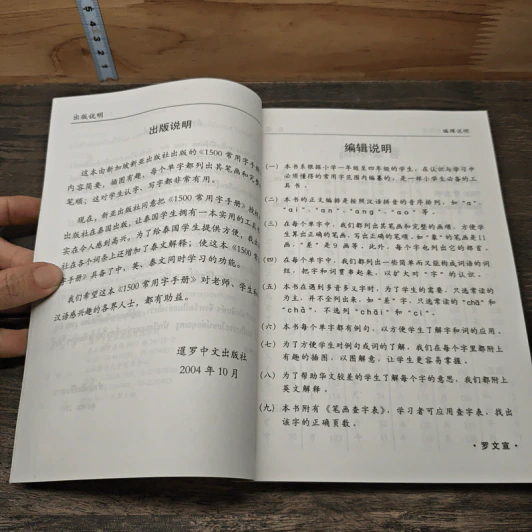 出版说明
出版说明
这本由新加坡新亚出版社出版的《1500常用字手册》
内容简要，插图有趣，每个单字都列出其笔画和完整的
笔顺；这对学生认字、写字都非常有用。
现在，新亚出版社同意把《1500常用字手册》
出版社在泰国出版，让泰国学生拥有一本实用的工具
实在令人感到高兴。为了给泰国学生提供方便，我出
社在各个词条上还增加了泰文解释；使这本《1500常
手册》具备了中、英、泰文同时学习的功能。
我们希望这本《1500常用字手册》对老师、学生和
汉语感兴趣的各界人士，都有助益。
暹罗中文出版社
2004年10月
编辑说明
编辑说明
（一） 本书系根据小学一年级至四年级的学生，在认识与学习中
必须懂得的常用字范围内编纂的，是一种小学生必备的工
具书。
（二） 本书的正文编排是按照汉语拼音的音序排列，如“a”、
“ai”、“an”、“ang”、“ao”等。
（三） 在每个单字中，我们都列出其笔画和完整的画顺，方便学
生算出正确的笔画，写出正确的笔顺。如“差”的笔画是11
画，“差”是9画等。此外，每个字也列出它的部首。
（四） 在每个单字中，我们都列出一些简单而又能构成词语的词
组，把字和词贯串起来，以扩大对“字”的认识。
（五） 本书在遇到多音多义字时，为了学生的需要，只选常读的
为主，并不全列出来。如“差”字，只选常读的“chā”和
“chà”，不选列“chāi”和“cī”。
（六） 本书每个单字都有例句，以方便学生了解字和词的应用。
（七） 为了方便学生对例句或词的了解，我们在每个字里都附上
有趣的插图，以图解意，让学生更容易掌握。
（八） 为了帮助华文较差的学生了解每个字的意思，我们都附上
英文解释。
（九） 本书附有《笔画查字表》，学习者可应用查字表，找出
该字的正确页数。
·罗文宣
5
4
3
2
1